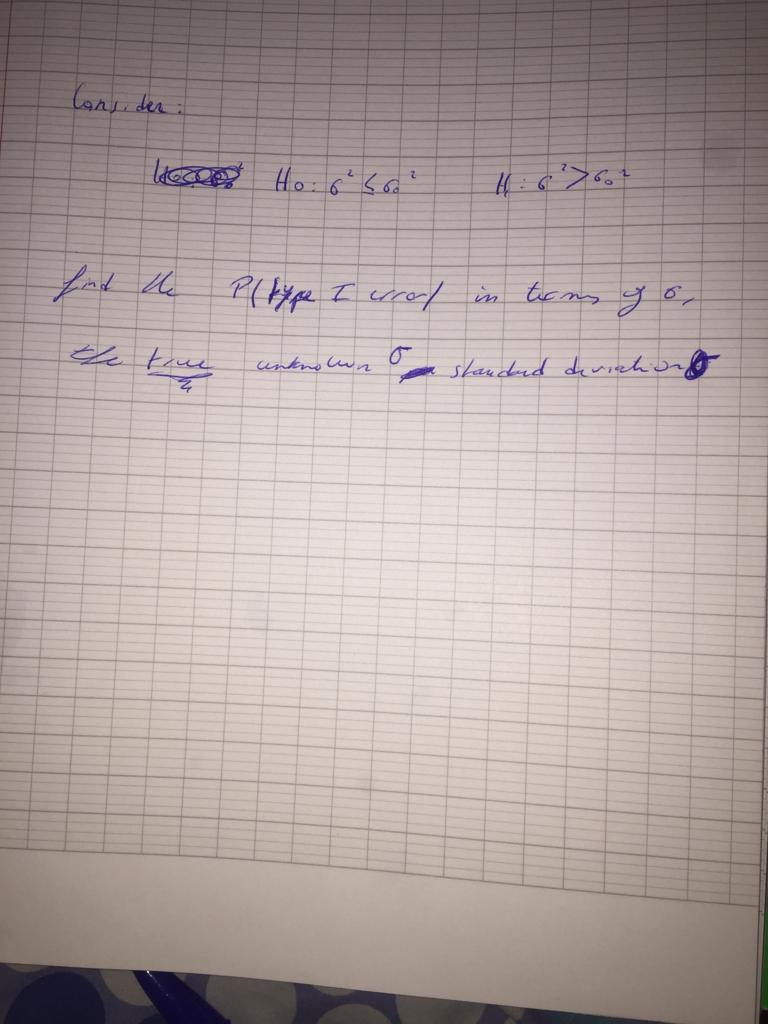 Consider:
H₀: σ² ≤ σ₀² H₁: σ² > σ₀²
find the P(type I error) in terms of σ,
the true unknown σ standard deviation